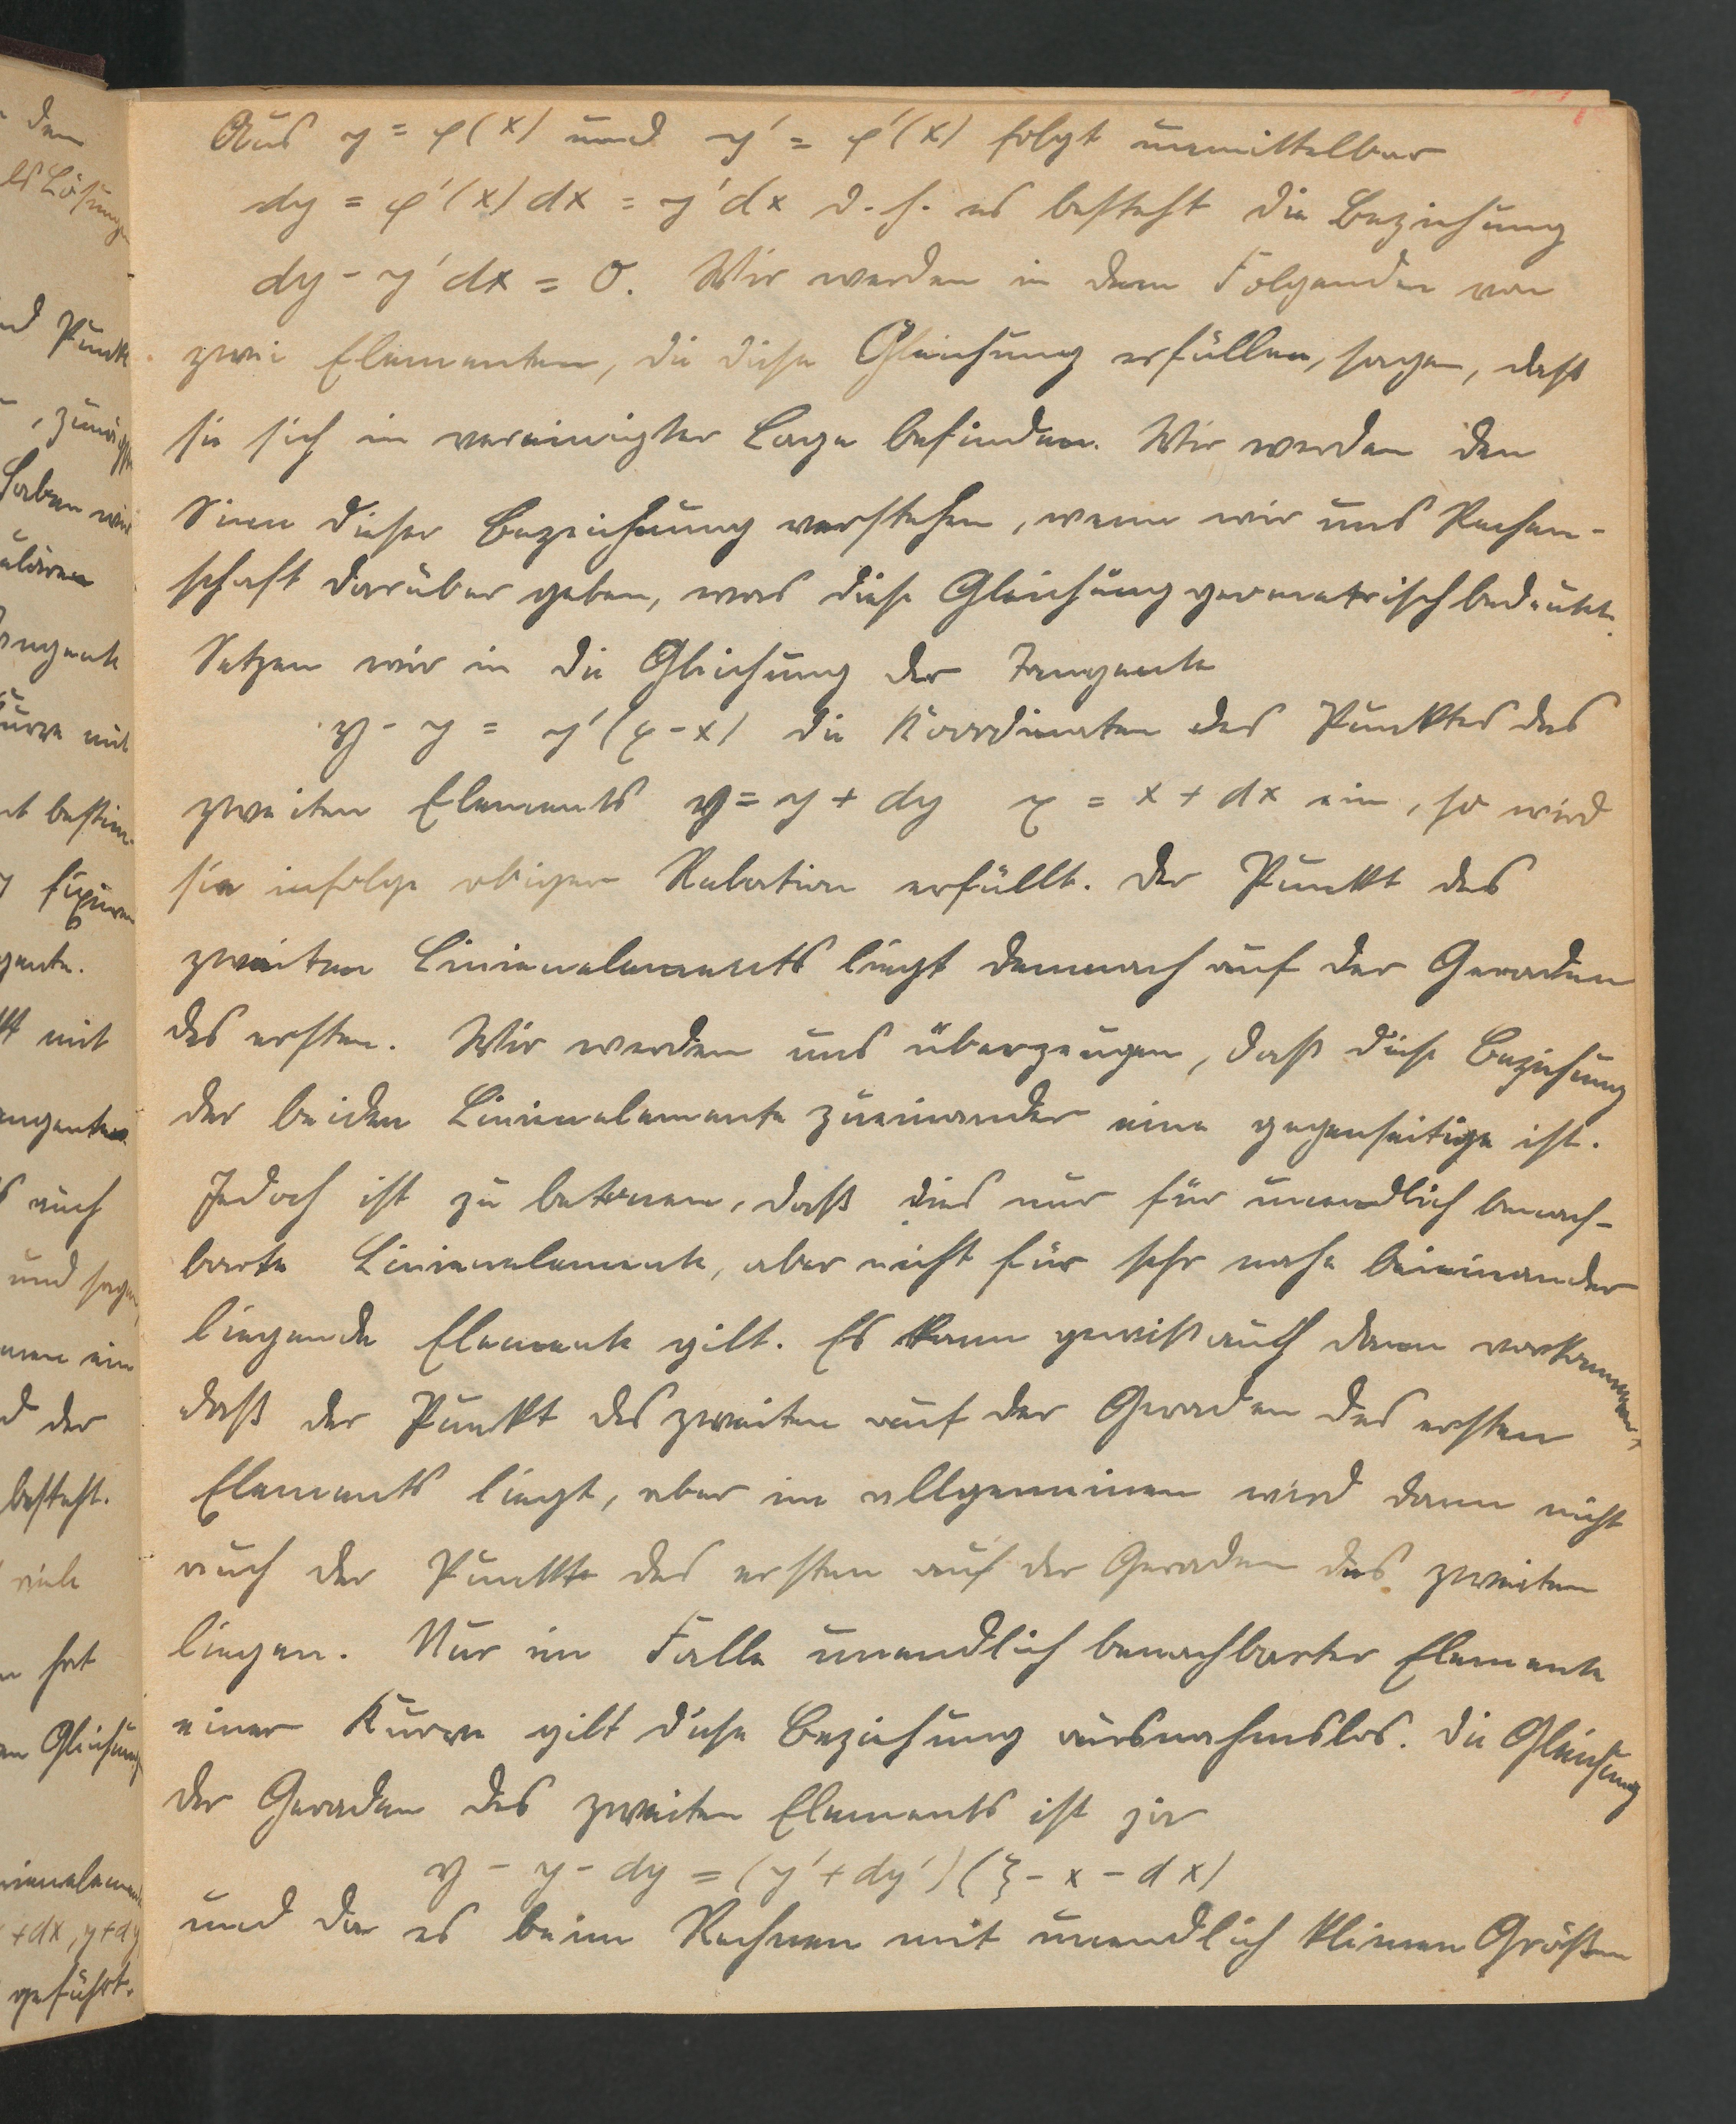 Aus y = φ(x) und y' = φ'(x) folgt unmittelbar
dy = φ'(x) dx = y' dx d. h. es besteht die Beziehung
dy - y' dx = 0. Wir werden in dem Folgenden von
zwei Elementen, die diese Gleichung erfüllen, sagen, daß
sie sich in vereinigter Lage befinden. Wir werden den
Sinn dieser Bezeichnung verstehen, wenn wir uns Rechen-
schaft darüber geben, was diese Gleichung geometrisch bedeutet.
Setzen wir in die Gleichung der Tangente
𝔶 - y = y'(𝔵 - x) die Koordinaten des Punktes des
zweiten Elements 𝔶 = y + dy 𝔵 = x + dx ein, so wird
sie infolge obiger Relation erfüllt. Der Punkt des
zweiten Linienelements liegt demnach auf der Geraden
des ersten. Wir werden uns überzeugen, daß diese Beziehung
der beiden Linienelemente zueinander eine gegenseitige ist.
Jedoch ist zu betonen, daß dies nur für unendlich benach-
barte Linienelemente, aber nicht für sehr nahe beieinander
liegende Elemente gilt. Es kann gewiß auch dann vorkommen,
daß der Punkt des zweiten auf der Geraden des ersten
Elements liegt, aber im allgemeinen wird dann nicht
auch der Punkt des ersten auf der Geraden des zweiten
liegen. Nur im Falle unendlich benachbarter Elemente
einer Kurve gilt diese Beziehung ausnahmslos. Die Gleichung
der Geraden des zweiten Elements ist ja
𝔶 - y - dy = (y' + dy')(ξ - x - dx)
und da es beim Rechnen mit unendlich kleinen Größen